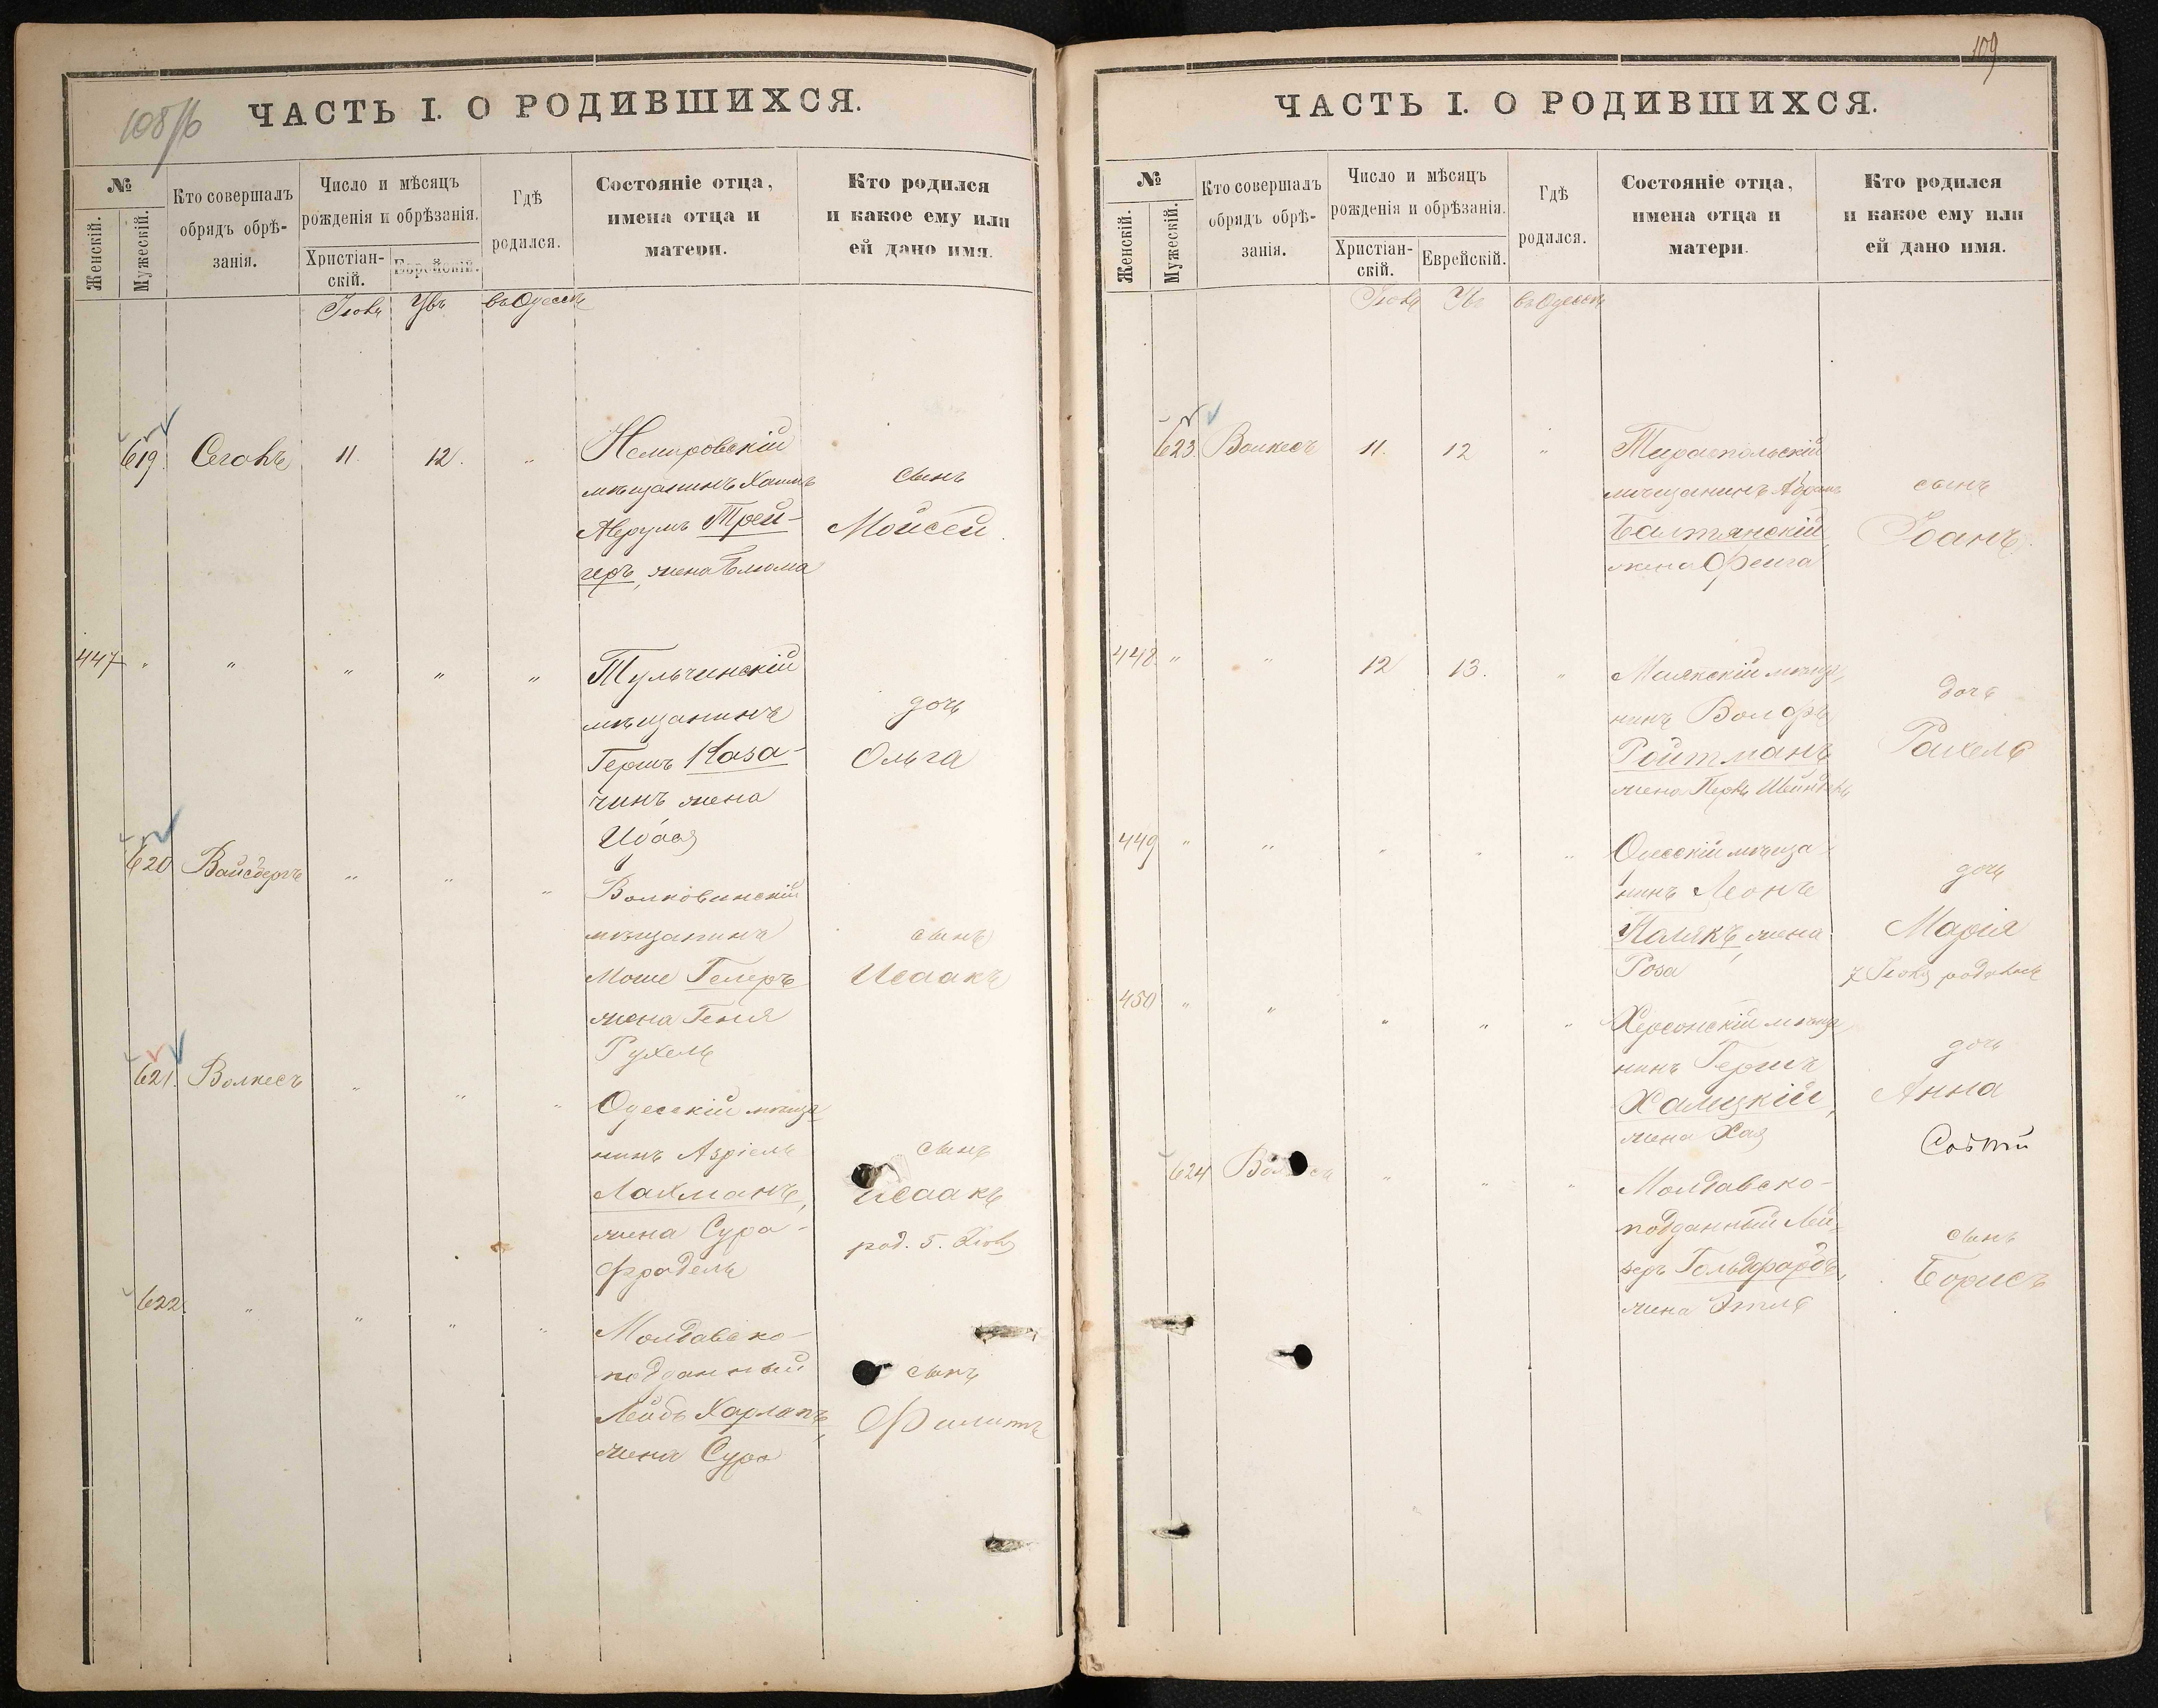 108/б
ЧАСТЬ I. О РОДИВШИХСЯ.
№
Женскій.
Мужескій.
Кто совершалъ
обрядъ обрѣ-
занія.
Число и мѣсяцъ
рожденія и обрѣзанія.
Христіан-
скій.
Еврейскій.
Гдѣ
родился.
Состояніе отца,
имена отца и
матери.
Кто родился
и какое ему или
ей дано имя.
въ Одессѣ
619 11. 12. „
Немировскій
мѣщанинъ Хаимъ
Аврумъ Трей-
геръ, жена Блюма
сынъ
Мойсей
447 „ „ „ „ „
Тульчинскій
мѣщанинъ
Гершъ Каза-
чинъ жена
дочь
Ольга
620 Вайсбергъ „ „ „
Волковинскій
мѣщанинъ
Моше Гелеръ
жена Геня
Рухель
сынъ
Исаакъ
621. Волкесъ „ „ „
Одесскій мѣща
нинъ Азріель
Лахманъ,
жена Сура-
Фрадель
сынъ
Исаакъ
род. 5.
622. „ „ „ „
Молдавско-
подданный
Лейбъ Харлапъ,
жена Сура
сынъ
Филипъ
109
ЧАСТЬ I. О РОДИВШИХСЯ.
№
Женскій.
Мужескій.
Кто совершалъ
обрядъ обрѣ-
занія.
Число и мѣсяцъ
рожденія и обрѣзанія.
Христіан-
скій.
Еврейскій.
Гдѣ
родился.
Состояніе отца,
имена отца и
матери.
Кто родился
и какое ему или
ей дано имя.
въ Одессѣ
623. Волкесъ 11. 12 „
Тираспольскій
мѣщанинъ Абрамъ
Балтянскій,
жена Фейга
сынъ
448. „ „ 12 13. „
Маякскій мѣща
нинъ Вольфъ
Ройтманъ
жена
дочь
Рахель
449 „ „ „ „ „
Одесскій мѣща
нинъ Леонъ
Палякъ, жена
Роза
дочь
Марія
450 „ „ „ „ „
Херсонскій мѣща
нинъ Гершъ
Халицкій,
жена Хая
дочь
Анна
624 Волкесъ „ „ „
Молдавско-
подданный Лей-
зеръ Гольдфарбъ,
жена Этля
сынъ
Борисъ